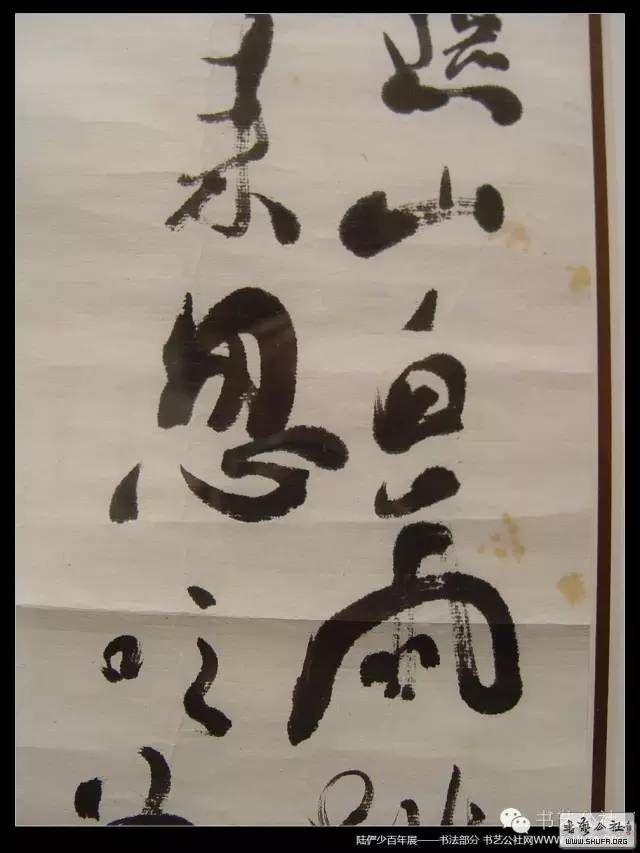 遮山白雨跳
来忽吹
书艺公社
陆俨少百年展——书法部分 书艺公社网www
书艺公社
WWW.SHUFA.ORG